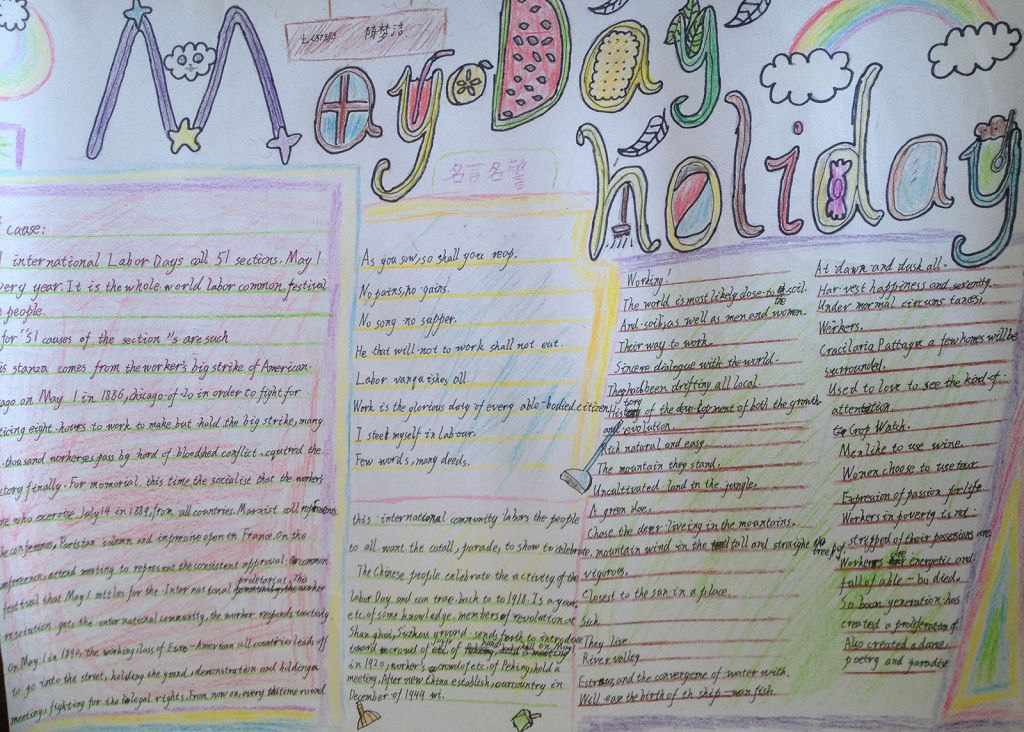 May Day
holiday
陈梦洁
名言名警
cause:
international Labor Days call 51 sections. May 1
very year. It is the whole world labor common festival
people.
for "51 causes of the section "s are such
stanza comes from the worker's big strike of American
ago on May 1 in 1886, chicago of 20 in order to fight for
ticing eight-hours to work to make but hold the big strike, many
thousand workerses pass by hard of bloodshed conflict
ctory finally. For momorial this time the socialise that the worker's
who exercise July 14 in 1889, from all countries. Marxist call
conference, Parisian solemn and impressive open in France. On tho
onference, attend meeting to represent the consistent approval: common
festival that May 1 settles for the International proletariat. This
resolution gets the international community, the worker responds
On May 1 in 1890, the working class of Euro-American all countries leads off
to go into the street, holding the grand, demonstration and holding a
meeting, fighting for the legal rights. From now on, every time round
As you sow, so shall you reap.
No pains, no gains.
No song no supper.
He that will not to work shall not eat.
Labor vanquishes all.
Work is the olorious duty of every able-bodied citizen
I steel myself in labour.
Few words, many deeds.
this international community labors the people
to all want the catall, parade, to show to celebrate,
The Chinese people celebrate the activity of the
labor Day and can trae back to to 1918. Is a year,
etc. of some knowledge members of revolution at
Shan ghai, Suzhou ground sends forth to introduce
toward
in 1920, worker's crowds of etc. of Peking, hold a
meeting. After new China establish, our country in
December of 1949
Working!
The world is most likely close to the soil.
And soil, as well as men and women.
Their way to work.
Sincere dialogue with the world.
They been drifting all local.
History of the development of both the growth
and evolution.
Rich natural and easy
The mountain they stand.
Uncultivated land in the jungle,
A green hoe,
Chase the deer liveing in the mountains.
mountain wind on the tall and straight
vigorous.
Closest to the sun in a place.
Such
They live
River valley
and the convergenc of water with.
Will ease the birth of th ship non fish.
At dawn and dusk all.
Harvest happiness and serenity.
Under normal circumstances,
Workers.
Cracilaria Pattaya a few homes will be
surrounded.
Used to love to see the kind of
attention.
Crop Watch.
Men like to use wine.
Women choose to use tear
Expression of passion for life.
Workers in poverty is not:
stripped of their possessions are
Workers are energetic and
full of able-bodied.
So boom generation has
created a proliferation of
Also created a dare
poetry and paradise